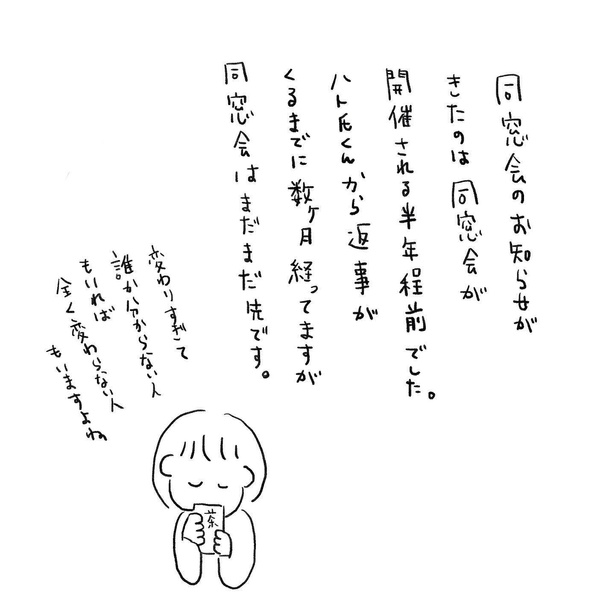 同窓会のお知らせが
きたのは同窓会が
開催される半年程前でした。
ハト氏くんから返事が
くるまでに数ヶ月経ってますが
同窓会はまだまだ先です。
変わりすぎて
誰か分からない人
もいれば
全く変わらない人
もいますよね
茶